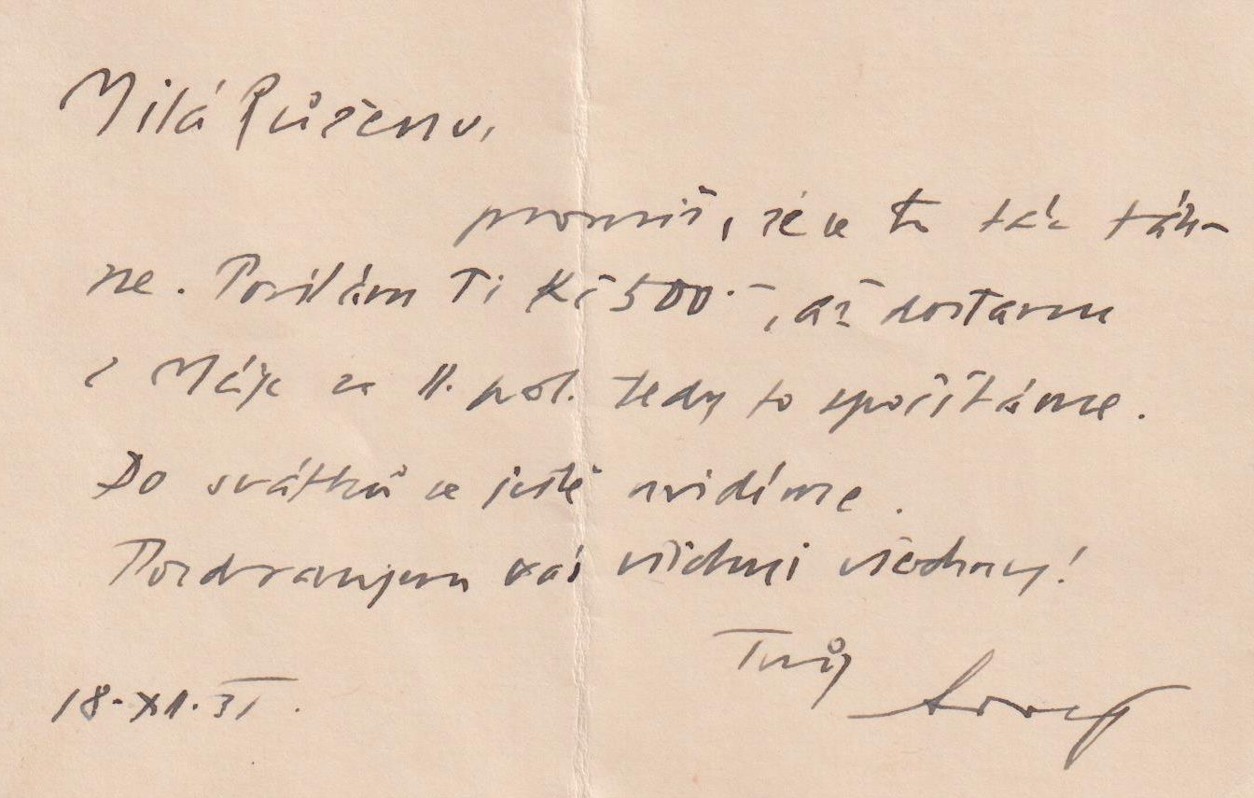 Milá Růženo,
promiň, že se to tak táh-
ne. Posílám Ti Kč 500.–, až dostanu
z Máje za II. pol. tedy to spočítáme.
Do svátků se ještě uvidíme.
Pozdravujem vás všichni všechny!
Tvůj
18.XI.31.